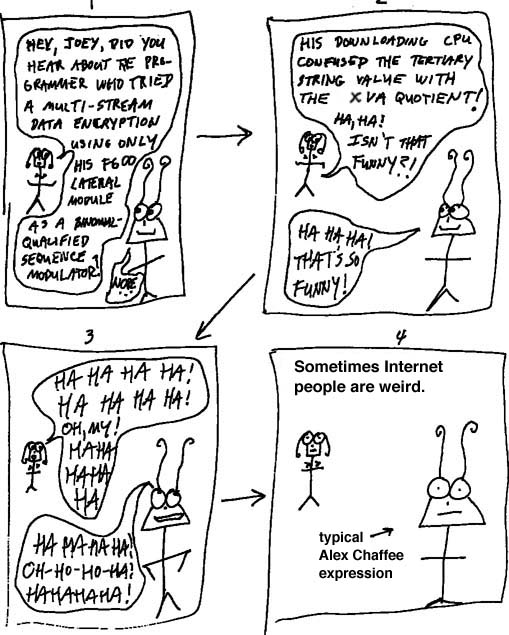 1
HEY, JOEY, DID YOU
HEAR ABOUT THE PRO-
GRAMMER WHO TRIED
A MULTI-STREAM
DATA ENCRYPTION
USING ONLY
HIS F600
LATERAL
MODULE
AS A BINOMIAL-
QUALIFIED
SEQUENCE
MODULATOR?
NOPE.
2
HIS DOWNLOADING CPU
CONFUSED THE TERTIARY
STRING VALUE WITH
THE XVA QUOTIENT!
HA, HA!
ISN'T THAT
FUNNY?!
HA HA HA!
THAT'S SO
FUNNY!
3
HA HA HA HA!
HA HA HA HA!
OH, MY!
HAHA
HAHA
HA
HA HA HA HA!
OH-HO-HO-HA!
HAHAHAHA!
4
Sometimes Internet
people are weird.
typical
Alex Chaffee
expression